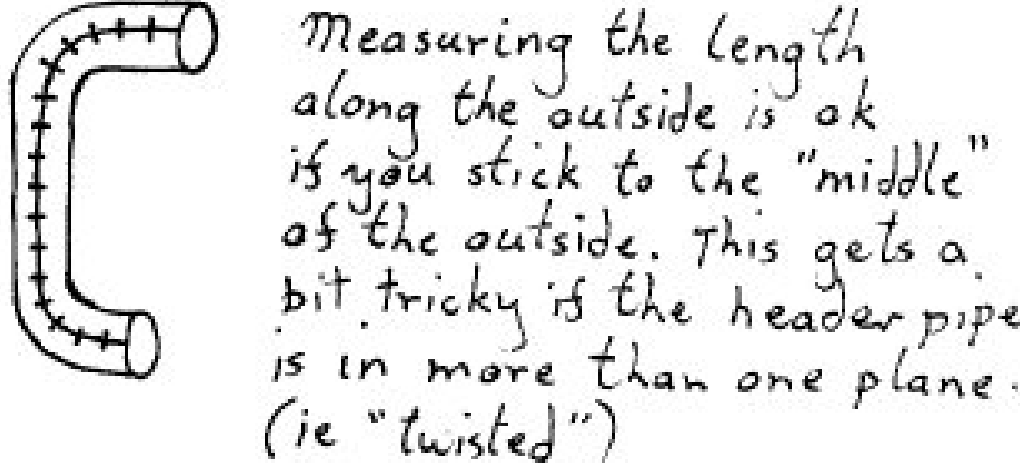 Measuring the length
along the outside is ok
if you stick to the "middle"
of the outside. This gets a
bit tricky if the header pipe
is in more than one plane.
(ie "twisted")